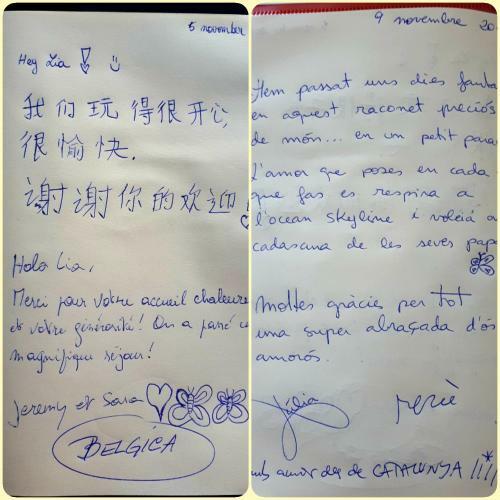 5 november
Hey Lia ! :)
我们玩得很开心,
很愉快.
谢谢你的欢迎
Hola Lia,
Merci pour votre accueil chaleure
et votre générosité! On a passé
magnifique séjour!
Jeremy et Sara
BELGICA
9 novembre 20
Hem passat uns dies fanta
en aquest raconet preciós
de món... en un petit para
L'amor que poses en cada
que fas es respira a
l'ocean Skyline i voleià a
cadascuna de les seves pape
Moltes gràcies per tot
una super abraçada d'ós
amorós.
Júlia
amb amor des de CATALUNYA !!!